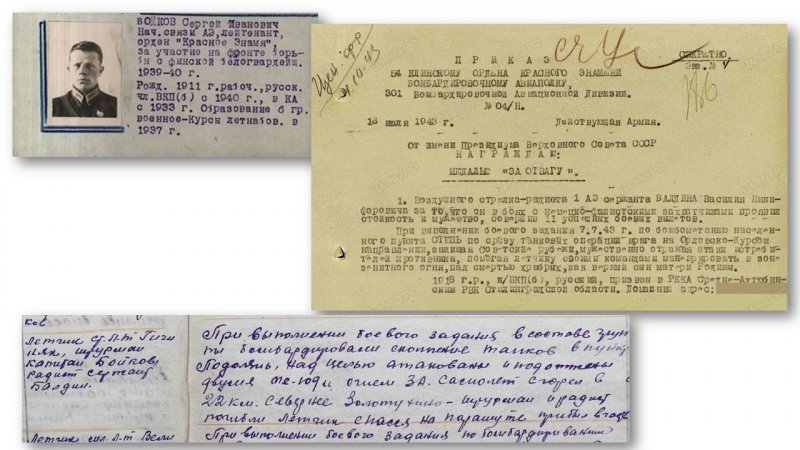 БОЙКОВ Сергей Иванович
Нач.связи АЭ, лейтенант,
орден "Красное Знамя",
за участие на фронте борь-
бы с финской белогвардейщ.
1939-40 г.
Рожд. 1911 г.рабоч., русск.
чл.ВКП(б) с 1940 г., в КА
с 1933 г. Образование 6 гр.
военное-Курсы летнабов. в
1937 г.
ПРИКАЗ
СЕКРЕТНО
Экз.№
54 КЛИНСКОМУ ОРДЕНА КРАСНОГО ЗНАМЕНИ
БОМБАРДИРОВОЧНОМУ АВИАПОЛКУ,
301 Бомбардировочной Авиационной Дивизии.
№ 04/Н.
18 июля 1943 г. Действующая Армия.
От имени Президиума Верховного Совета СССР
НАГРАЖДАЮ:
МЕДАЛЬЮ "ЗА ОТВАГУ".
1. Воздушного стрелка-радиста 1 АЭ сержанта БАЛДИНА Василия Ники-
форовича за то,что он в боях с немецко-фашистскими захватчиками проявил
стойкость и мужество, совершив 11 успешных боевых вылетов.
При выполнении боевого задания 7.7.43 г. по бомбометанию населен-
ного пункта СТЕПЬ по срыву танковых операций врага на Орловско-Курском
направлении,защищая Советские рубежи,мужественно отражая атаки истреби-
телей противника, помогая летчику своими командами маневрировать в зоне
зенитного огня,пал смертью храбрых,как верный сын матери Родины.
1918 г.р., к/ВКП(б), русский, призван в РККА Средне-Ахтубин-
ским РВК Сталинградской области. Домашний адрес:
Летчик ст. л-т
штурман
капитан Бойков
радист сержант
Балдин.
При выполнении боевого задания в составе
бомбардировали скопление танков в
Подолянь, над целью атакованы и подожжены
двумя Ме-109 и огнем ЗА. Самолет сгорел в
22 км. севернее Золотухино - штурман и радист
погибли летчик спасся на парашюте прибыл в
Летчик мл. л-т
При выполнении боевого задания по бомбардированию